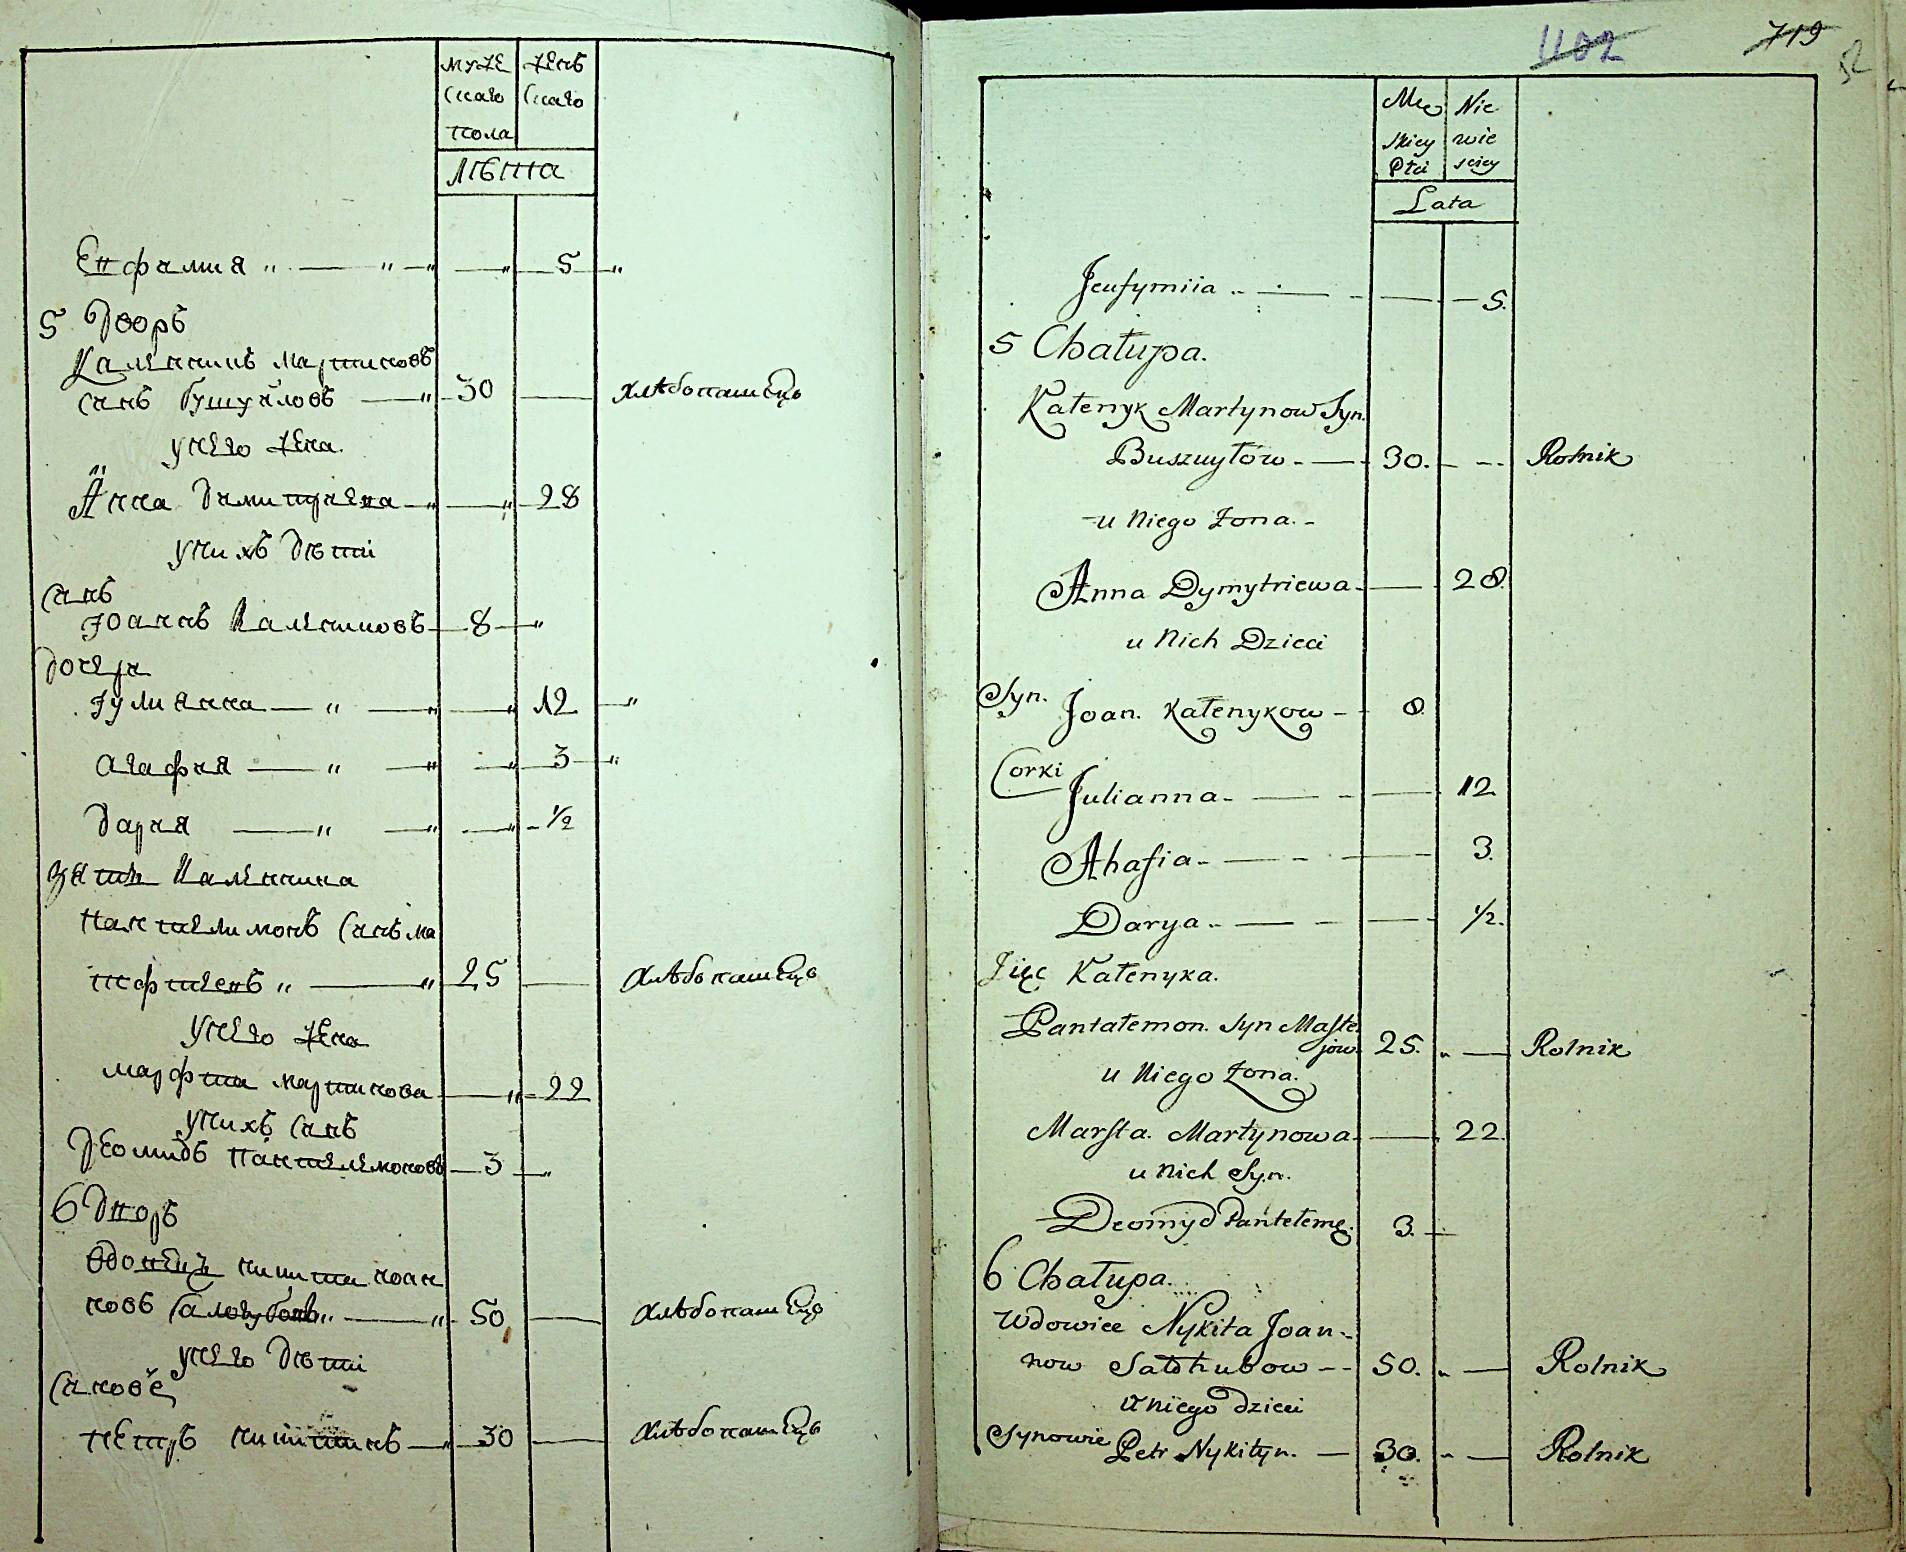 муже женs
скаго скаго
пола
лѣта
Евфамия „ — „ — „ — „ 5 — „
5 Дворъ
Каленикъ Мартиновъ
синъ Бушуйловъ — „ 30 — хлѣбопашецъ
у него жена
Анна Димитриева — „ — „ 28
у нихъ дѣти
синъ
Іоаннъ Калениковъ — 8 — „
дочери
Іулиянна — „ — „ — „ 12 — „
Агафия — „ — „ — „ 3 — „
Дария — „ — „ — „ 1/2
зять Каленика
Пантелимонъ синъ Ма
тфтеевъ „ — „ 25 — хлѣбопашецъ
у него жена
Марфта Мартинова — „ 22
у нихъ синъ
Деомидъ Пантелемоновъ — 3 — „
6 Дворъ
Вдовецъ Никита Иоан
новъ — „ 50 — хлѣбопашецъ
у него дѣти
синове
Петръ Никитинъ — „ 30 — хлѣбопашецъ
1102 719
Mę Nie
skiey wie
Płci sciey
Lata
Jeufymiia — — — 5.
5 Chałupa.
Kałenyk Martynow Syn.
Buszuyłow. — 30. — Rolnik
u Niego Żona. -
Anna Dymytriewa. — 28.
u Nich Dzieci
Syn. Joan. Kałenykow - 8.
Corki Julianna - — 12
Ahafia - — 3.
Darya - — 1/2.
Zięc Kałenyka.
Pantałemon. Syn Mafte
jow. 25. „ — Rolnik
u Niego Żona.
Marfta. Martynowa. — 22.
u Nich Syn.
Deomyd Pantełemo. 3. —
6 Chałupa.
Wdowiec Nykita Joan-
now Sałohubow -- 50. „ — Rolnik
u niego dzieci
Synowie Petr Nykityn. — 30. „ — Rolnik